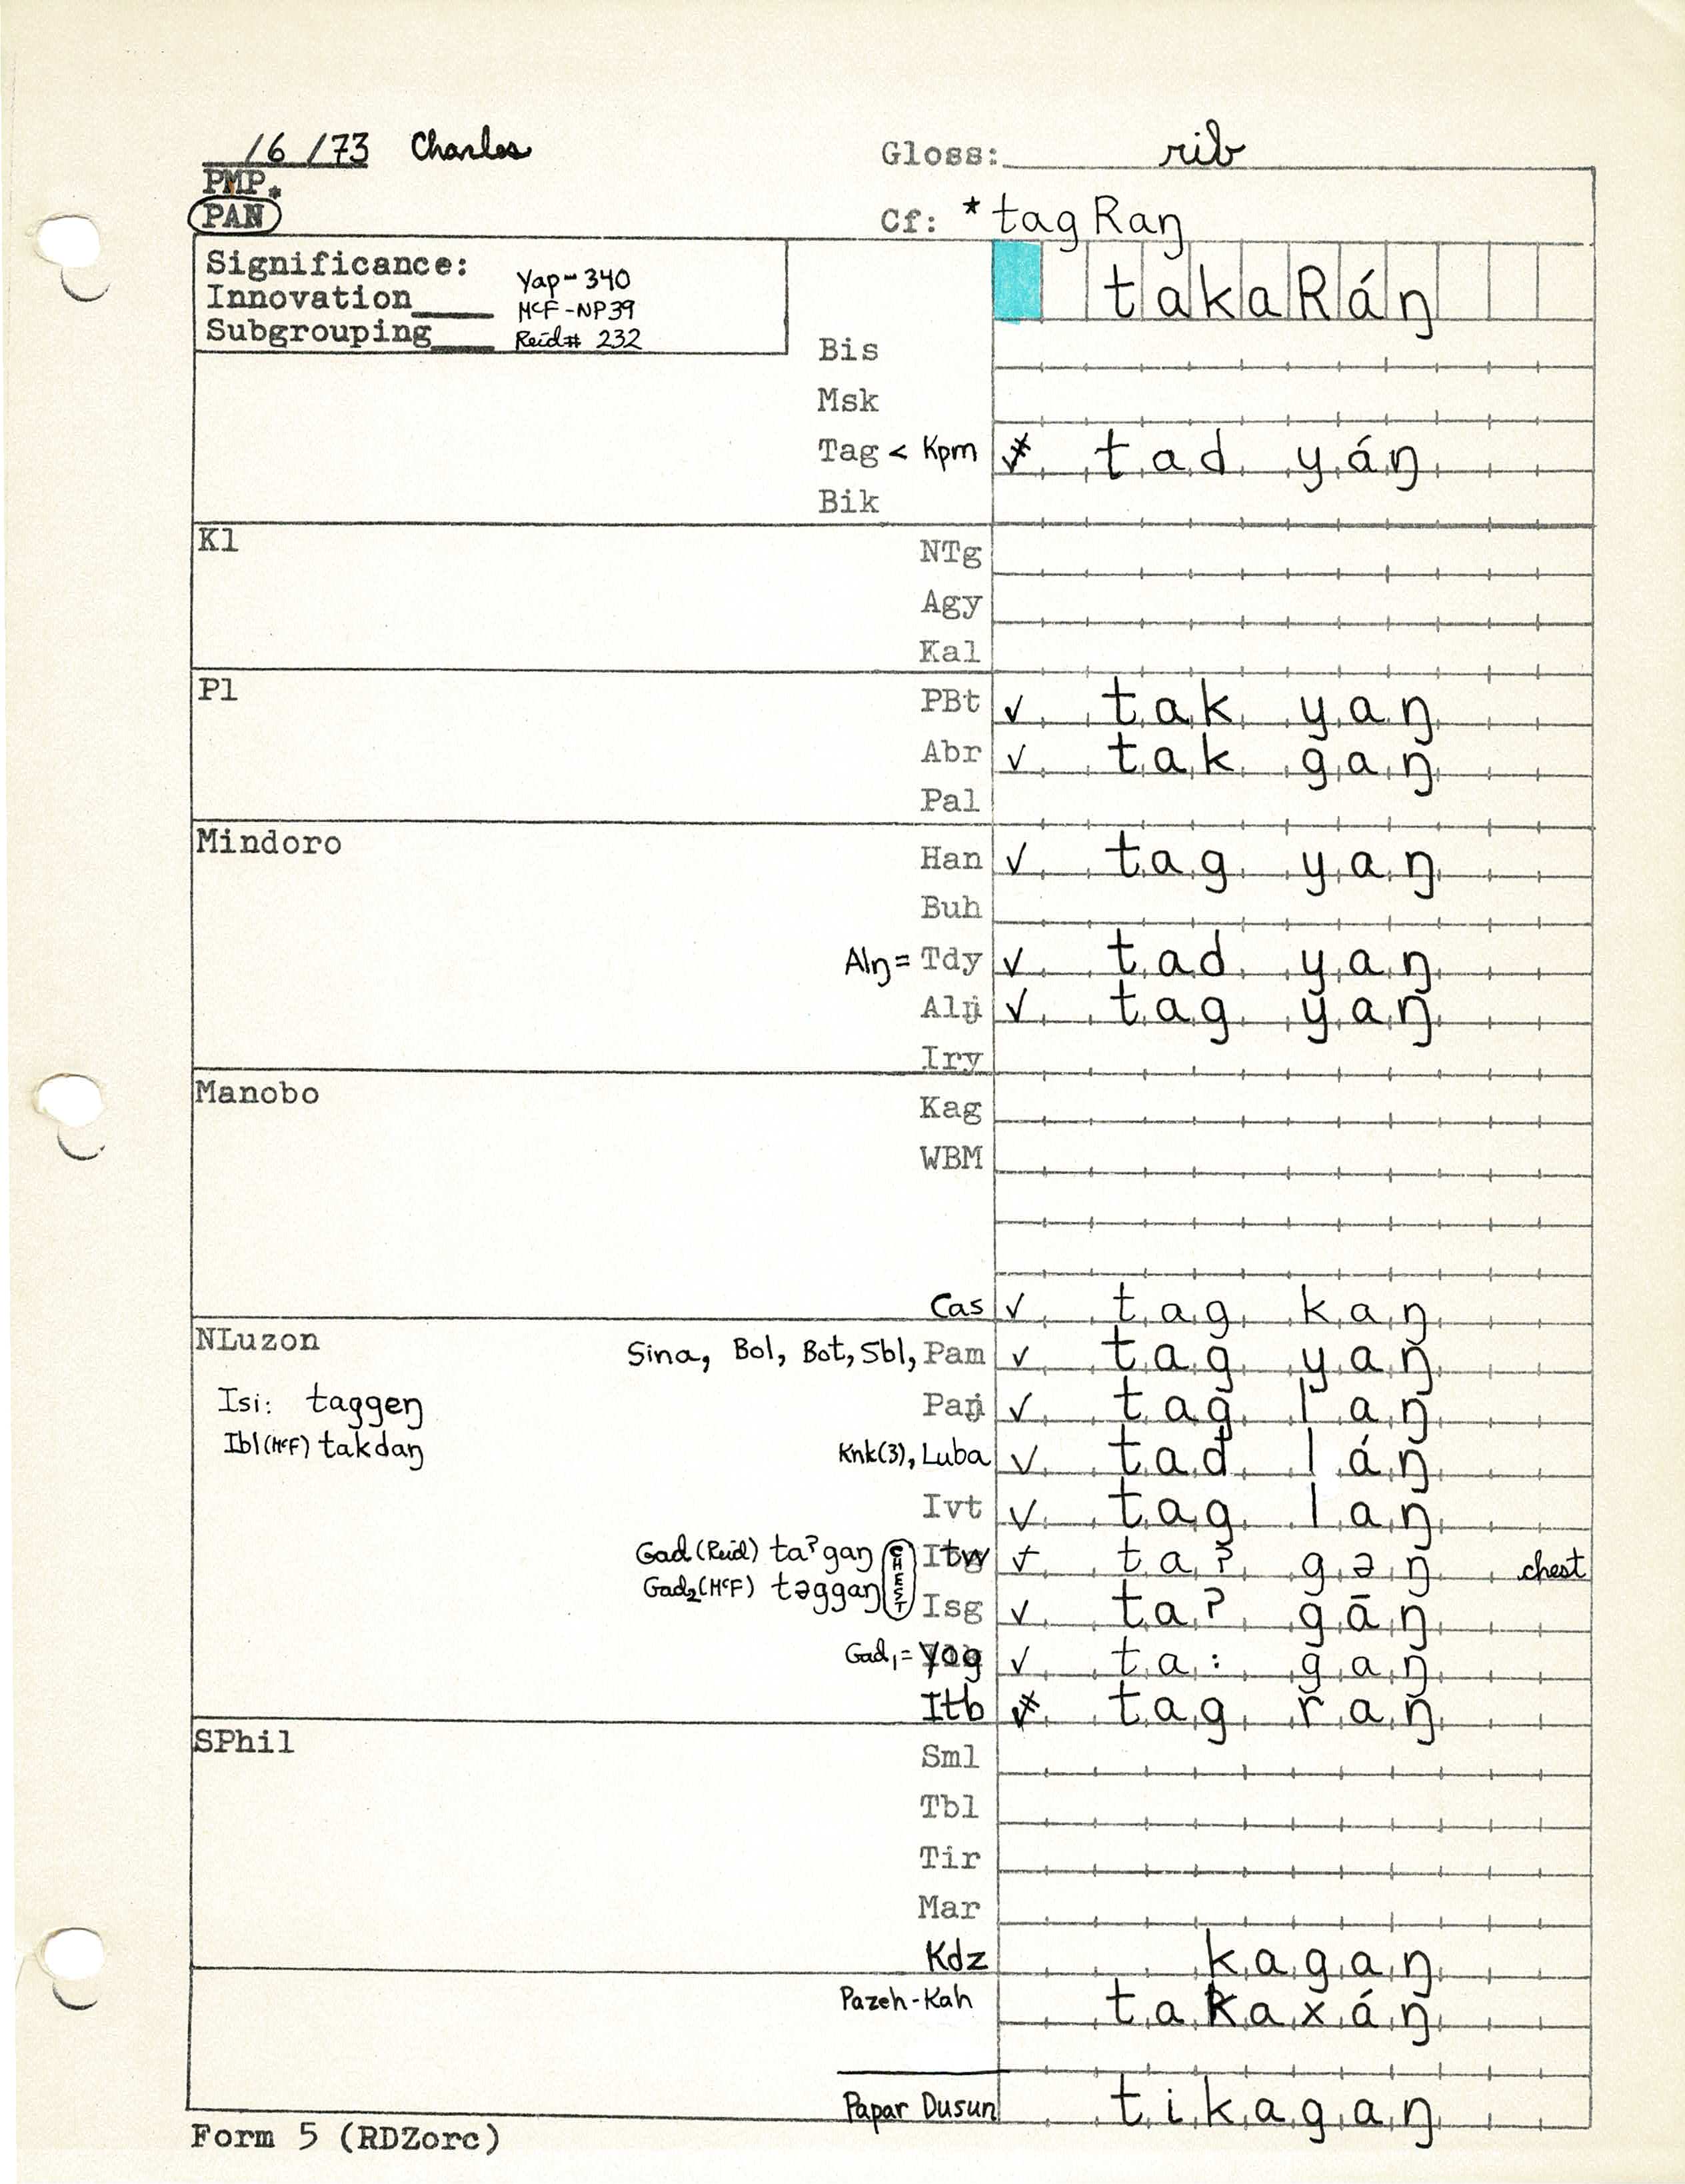 /6 /73 Charles Gloss: rib
PMP *
PAN Cf: *tagRaŋ
Significance: Yap-340 takaRáŋ
Innovation____ McF-NP39
Subgrouping____ Reid# 232
Bis
Msk
Tag < Kpm tad yáŋ
Bik
Kl NTg
Agy
Kal
Pl PBt ✓ tak yaŋ
Abr ✓ tak gaŋ
Pal
Mindoro Han ✓ tag yaŋ
Buh
Alŋ = Tdy ✓ tad yaŋ
Alŋ ✓ tag yaŋ
Iry
Manobo Kag
WBM
Cas ✓ tag kaŋ
NLuzon Sina, Bol, Bot, Sbl, Pam ✓ tag yaŋ
Isi: taggeŋ Paŋ ✓ tag laŋ
Ibl (McF) takdaŋ Knk(3), Luba ✓ tad láŋ
Ivt ✓ tag laŋ
Gad (Reid) taʔgaŋ CHEST Itw ✓ taʔ gəŋ chest
Gad2 (McF) təggaŋ Isg ✓ taʔ gāŋ
Gad1 = Yog ✓ ta: gaŋ
Itb tag raŋ
SPhil Sml
Tbl
Tir
Mar
Kdz kagaŋ
Pazeh-Kah takaxáŋ
Papar Dusun tikagaŋ
Form 5 (RDZorc)